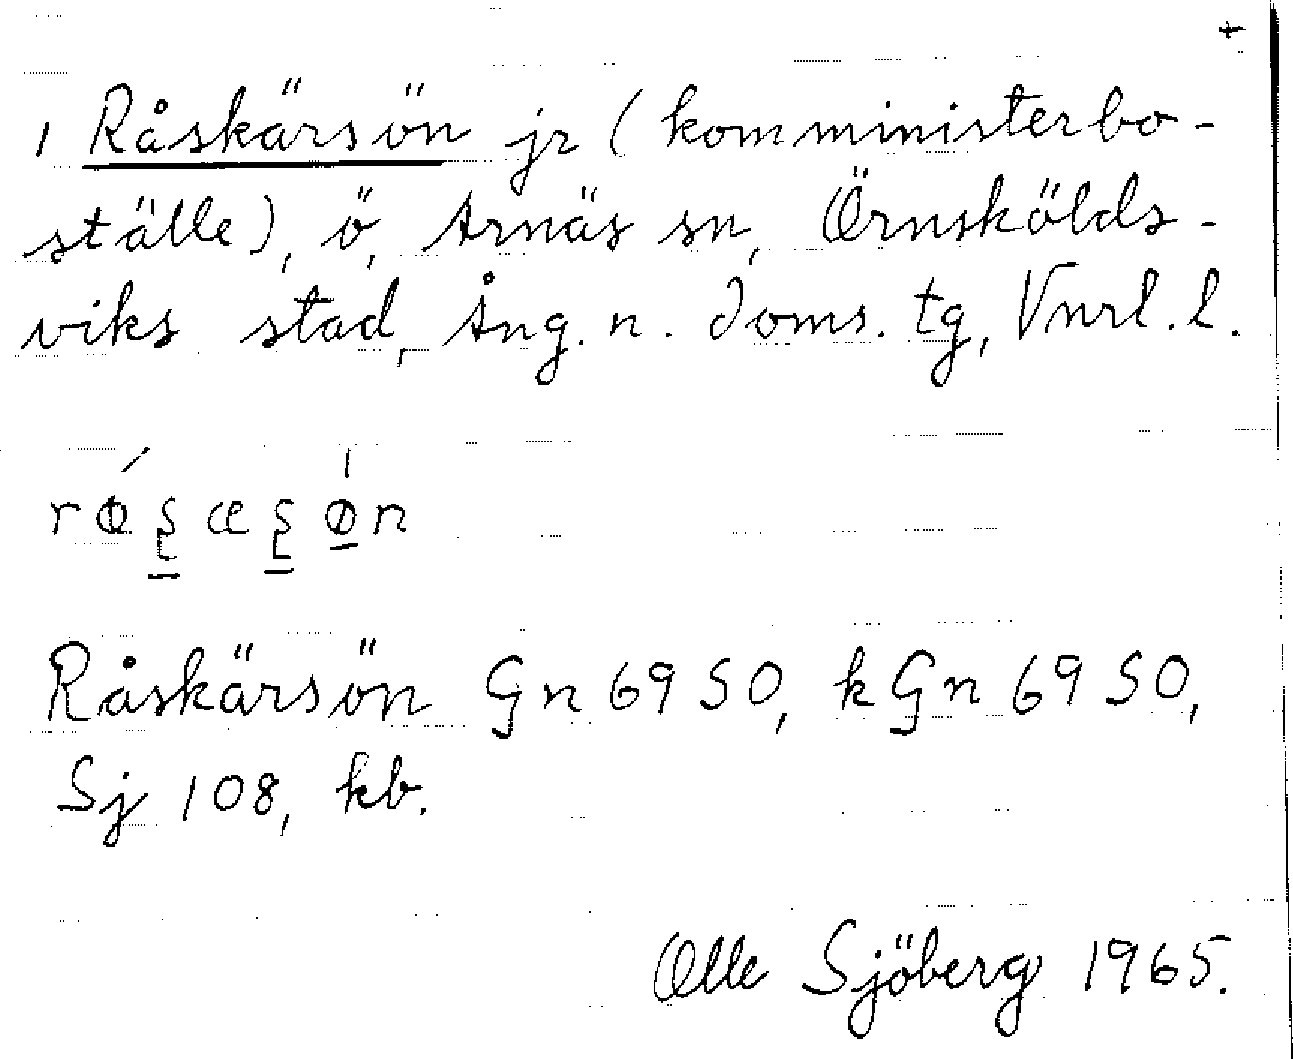 +
1 Råskärsön jr (komministerbo-
ställe), ö, Arnäs sn, Örnskölds-
viks stad, Ång. n. doms. tg, Vnrl. l.
Råskärsön Gn 69 SO, kGn 69 SO,
Sj 108, kb.
Olle Sjöberg 1965.